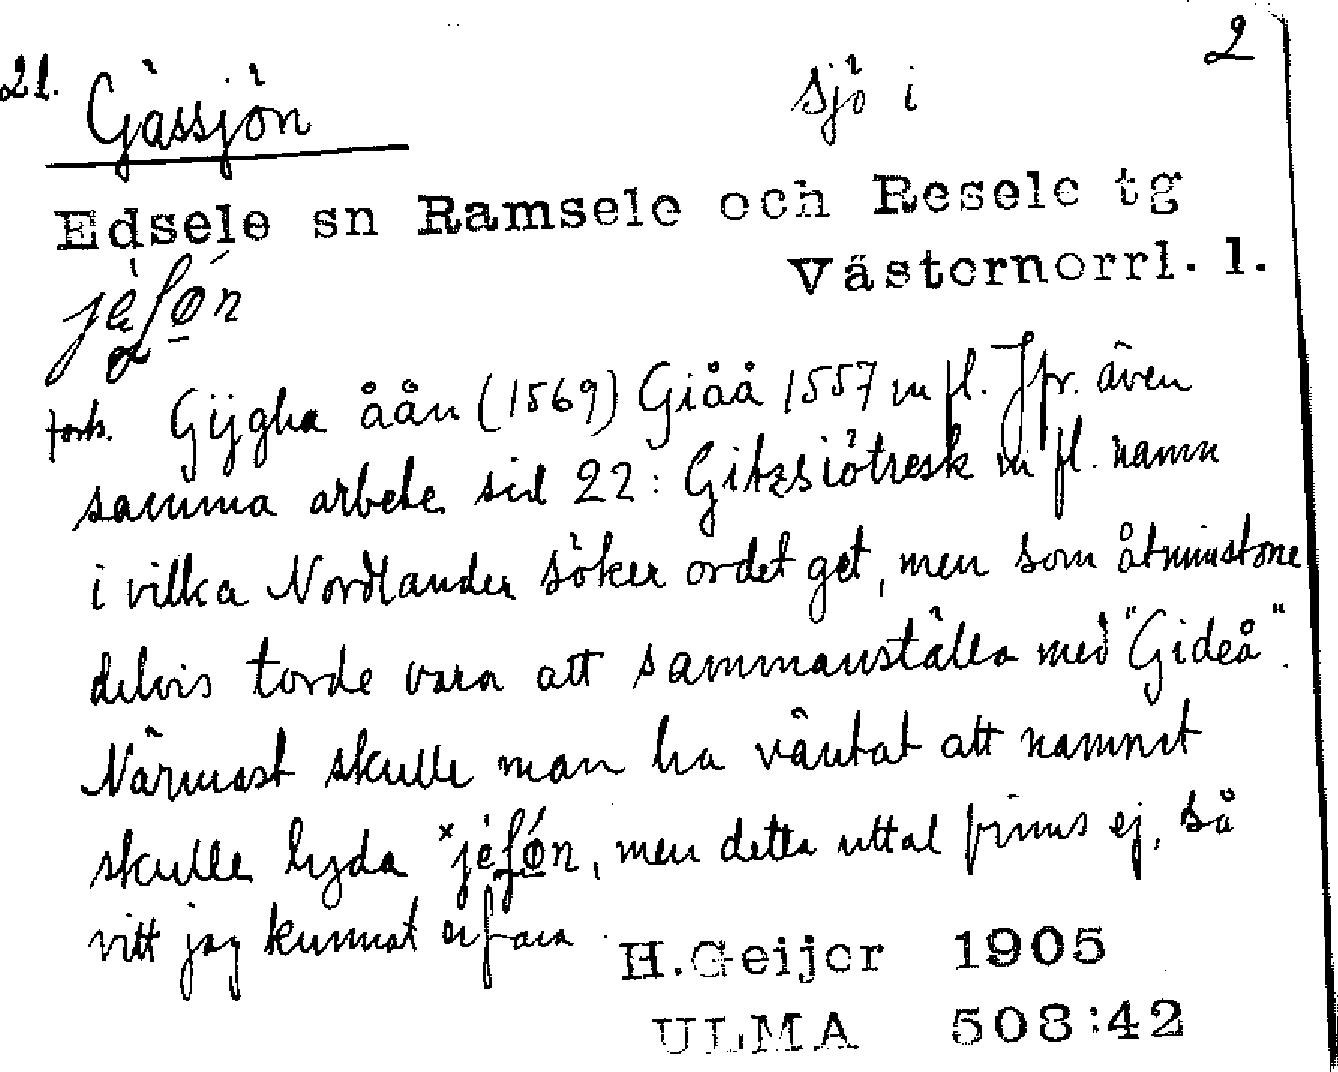 2
21. Gässjön sjö i
Edsele sn Ramsele och Resele tg
Västernorrl. l.
forts. Gijgha åån (1569) Giåå 1557 m fl. Jfr. även
samma arbete sid 22: Gitzsiötresk m fl. namn
i vilka Nordlander söker ordet get, men som åtminstone
delvis torde vara att sammanställa med "Gideå".
Närmast skulle man ha väntat att namnet
skulle lyda men detta uttal finns ej, så
vitt jag kunnat erfara.
H.Geijer 1905
ULMA 508:42